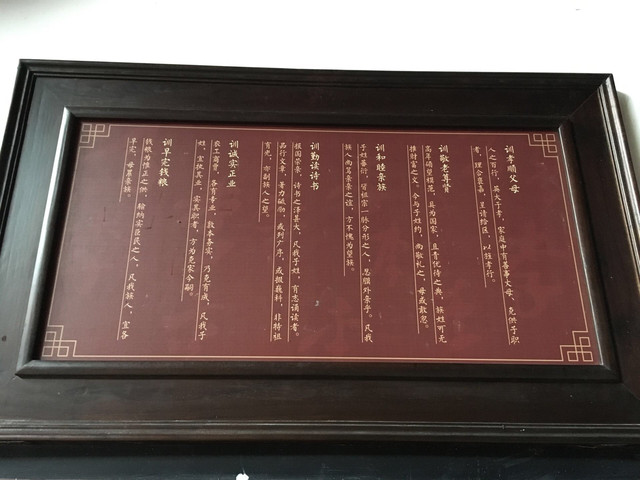 训孝顺父母
人之百行，莫大于孝，家庭中有善事父母，克供子职
者，理合显嘉，呈请给匾，以旌孝行。
训敬老尊贤
高年硕望祖范，其为国家，且膺优待之典，族姓可无
推财富之文，会与子姓约，而敬礼之，毋或敢忽。
训和睦亲族
子姓蕃衍，皆祖宗一脉分形之人，忽猵外亲乎。凡我
族人尚笃亲亲之谊，方不愧为望族。
训勤读诗书
报国荣亲，诗书之泽甚大，凡我子姓，有志诵读者。
品行文章，著力砥砺，或列广序，或掇巍科，非特祖
有光，亦副族人之望。
训诚实正业
农工商贾，各有专业，敦本务实，乃克有成，凡我子
姓，宜执其业，实其职者，方为克家令嗣。
训早完钱粮
钱粮为惟正之供，输纳实庶民之人，凡我族人，宜各
早完，毋累亲族。